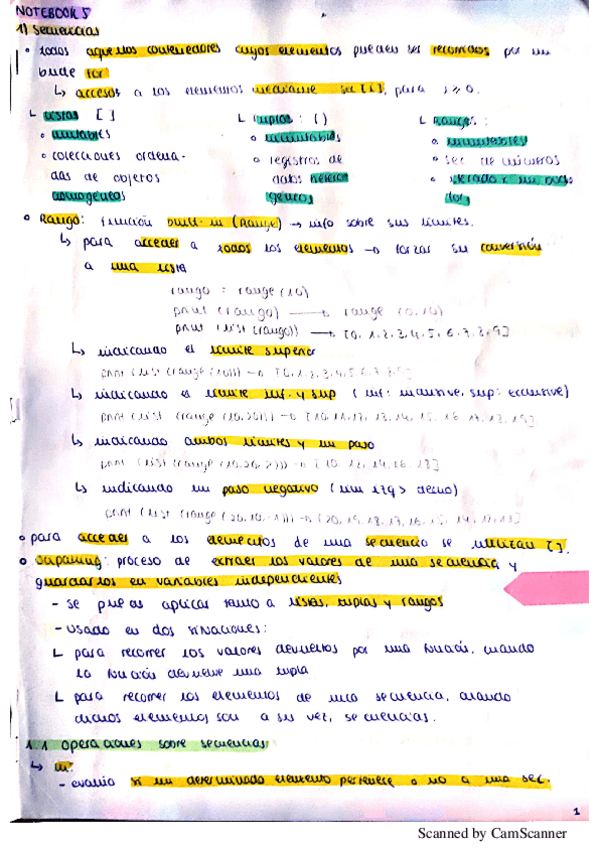 NOTEBOOK 5
1) Secuencias
• todos aquellos contenedores cuyos elementos pueden ser recorridos por un
bucle for
↳ accesos a los elementos mediante sec[i], para i ≥ 0.
L listas [ ]
• mutables
• colecciones ordena-
das de objetos
homogéneos
L tuplas: ( )
• inmutables
• registros de
datos hetero
géneos
L Rangos:
• inmutables
• sec de números
• iterado un bucle
for
• Rango: función built-in (Range) → info sobre sus límites.
↳ para acceder a todos los elementos → forzar su conversión
a una lista
rango = range (10)
print (rango) → range (0,10)
print (list (rango)) → [0,1,2,3,4,5,6,7,8,9]
↳ indicando el límite superior
print (list (range (10))) → [0,1,2,3,4,5,6,7,8,9]
↳ indicando el límite inf. y sup (inf: inclusive, sup: exclusive)
print (list (range (10,20))) → [10,11,12,13,14,15,16,17,18,19]
↳ indicando ambos límites y un paso
print (list (range (10,20,2))) → [10,12,14,16,18]
↳ indicando un paso negativo (lim izq > decho)
print (list (range (20,10,-1))) → [20,19,18,17,16,15,14,13,12,11]
• para acceder a los elementos de una secuencia se utilizan [].
• unpacking: proceso de extraer los valores de una secuencia y
guardarlos en variables independientes
- se puede aplicar tanto a listas, tuplas y rangos
- usado en dos situaciones:
L para recorrer los valores devueltos por una función, cuando
la función devuelve una tupla
L para recorrer los elementos de una secuencia, cuando
dichos elementos son a su vez, secuencias.
1.1 operaciones sobre secuencias
↳ in:
- evalúa si un determinado elemento pertenece o no a una sec.
1
Scanned by CamScanner